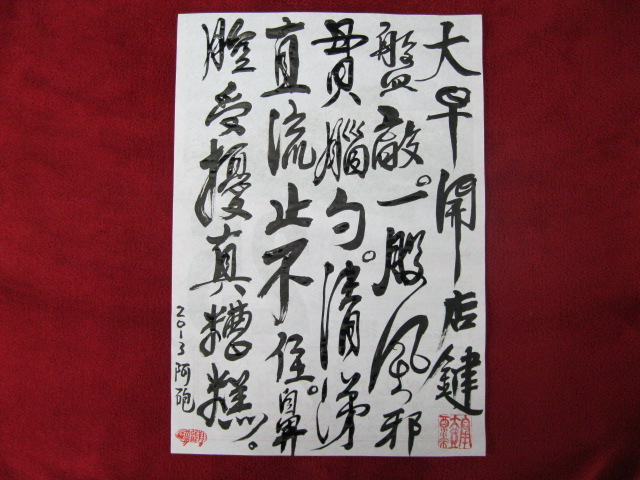 大早開店鍵
盤敲。一股風邪
貫腦勺。清涕
直流止不住。鼻
腔受擾真糟糕。
2013 阿砲